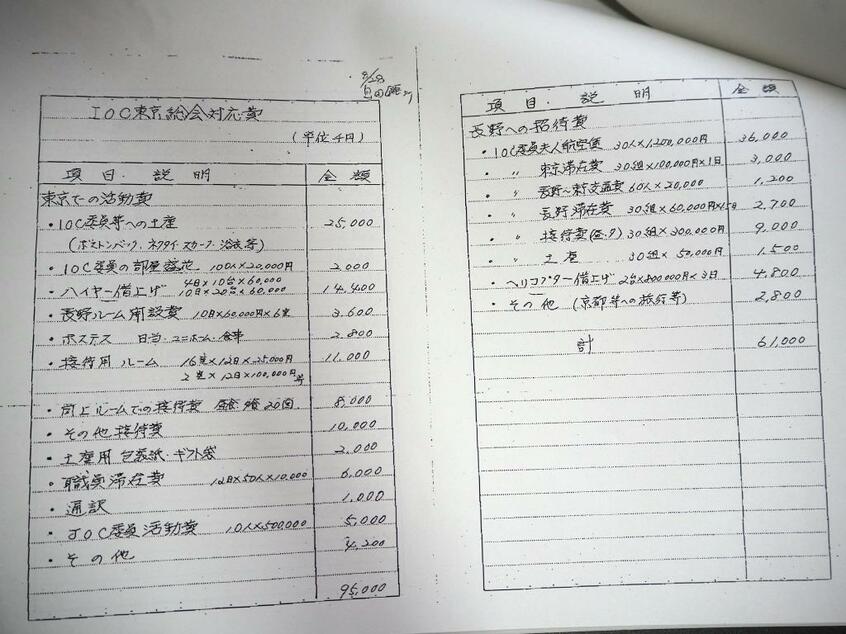 8/28
IOC東京総会対応費
(単位千円)
項目・説明 金額
東京での活動費
・IOC委員等への土産 25,000
(ボストンバック、ネクタイ、スカーフ、浴衣等)
・IOC委員の部屋盛花 100人×20,000円 2,000
・ハイヤー借上げ 4日×10台×60,000 14,400
10日×20台×60,000
・長野ルーム開設費 10日×60,000円×6室 3,600
・ホステス 日当・ユニホーム・食事 2,800
・接待用ルーム 16室×12日×25,000円 11,000
2室×12日×100,000円 等
・同上ルームでの接待費 昼食 夕食 20回 8,000
・その他接待費 10,000
・土産用包装紙・ギフト袋 2,000
・職員滞在費 12日×50人×10,000 6,000
・通訳 1,000
・JOC委員活動費 10人×500,000 5,000
・その他 4,200
95,000
項目・説明 金額
長野への招待費
・IOC委員夫人航空賃 30人×1,200,000円 36,000
・〃 東京滞在費 30組×100,000円×1日 3,000
・〃 長野〜東京交通費 60人×20,000 1,200
・〃 長野滞在費 30組×60,000円×1.5日 2,700
・〃 接待費(昼・夕) 30組×300,000円 9,000
・〃 土産 30組×50,000円 1,500
・ヘリコプター借上げ 2台×800,000円×3日 4,800
・その他 (京都等への旅行等) 2,800
計 61,000